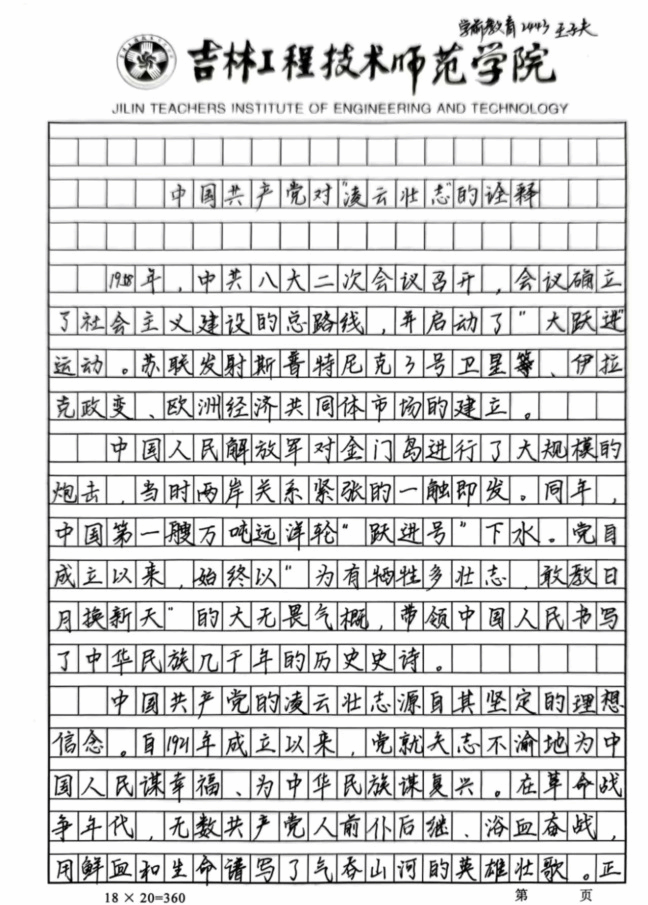 学前教育2443 王子夫
吉林工程技术师范学院
JILIN TEACHERS INSTITUTE OF ENGINEERING AND TECHNOLOGY
中国共产党对"凌云壮志"的诠释
1958年,中共八大二次会议召开,会议确立
了社会主义建设的总路线,并启动了"大跃进"
运动。苏联发射斯普特尼克3号卫星等、伊拉
克政变、欧洲经济共同体市场的建立。
中国人民解放军对金门岛进行了大规模的
炮击,当时两岸关系紧张的一触即发。同年,
中国第一艘万吨远洋轮"跃进号"下水。党自
成立以来,始终以"为有牺牲多壮志,敢教日
月换新天"的大无畏气概,带领中国人民书写
了中华民族几千年的历史史诗。
中国共产党的凌云壮志源自其坚定的理想
信念。自1921年成立以来,党就矢志不渝地为中
国人民谋幸福、为中华民族谋复兴。在革命战
争年代,无数共产党人前仆后继、浴血奋战,
用鲜血和生命谱写了气吞山河的英雄壮歌。正
18 × 20=360 第 页